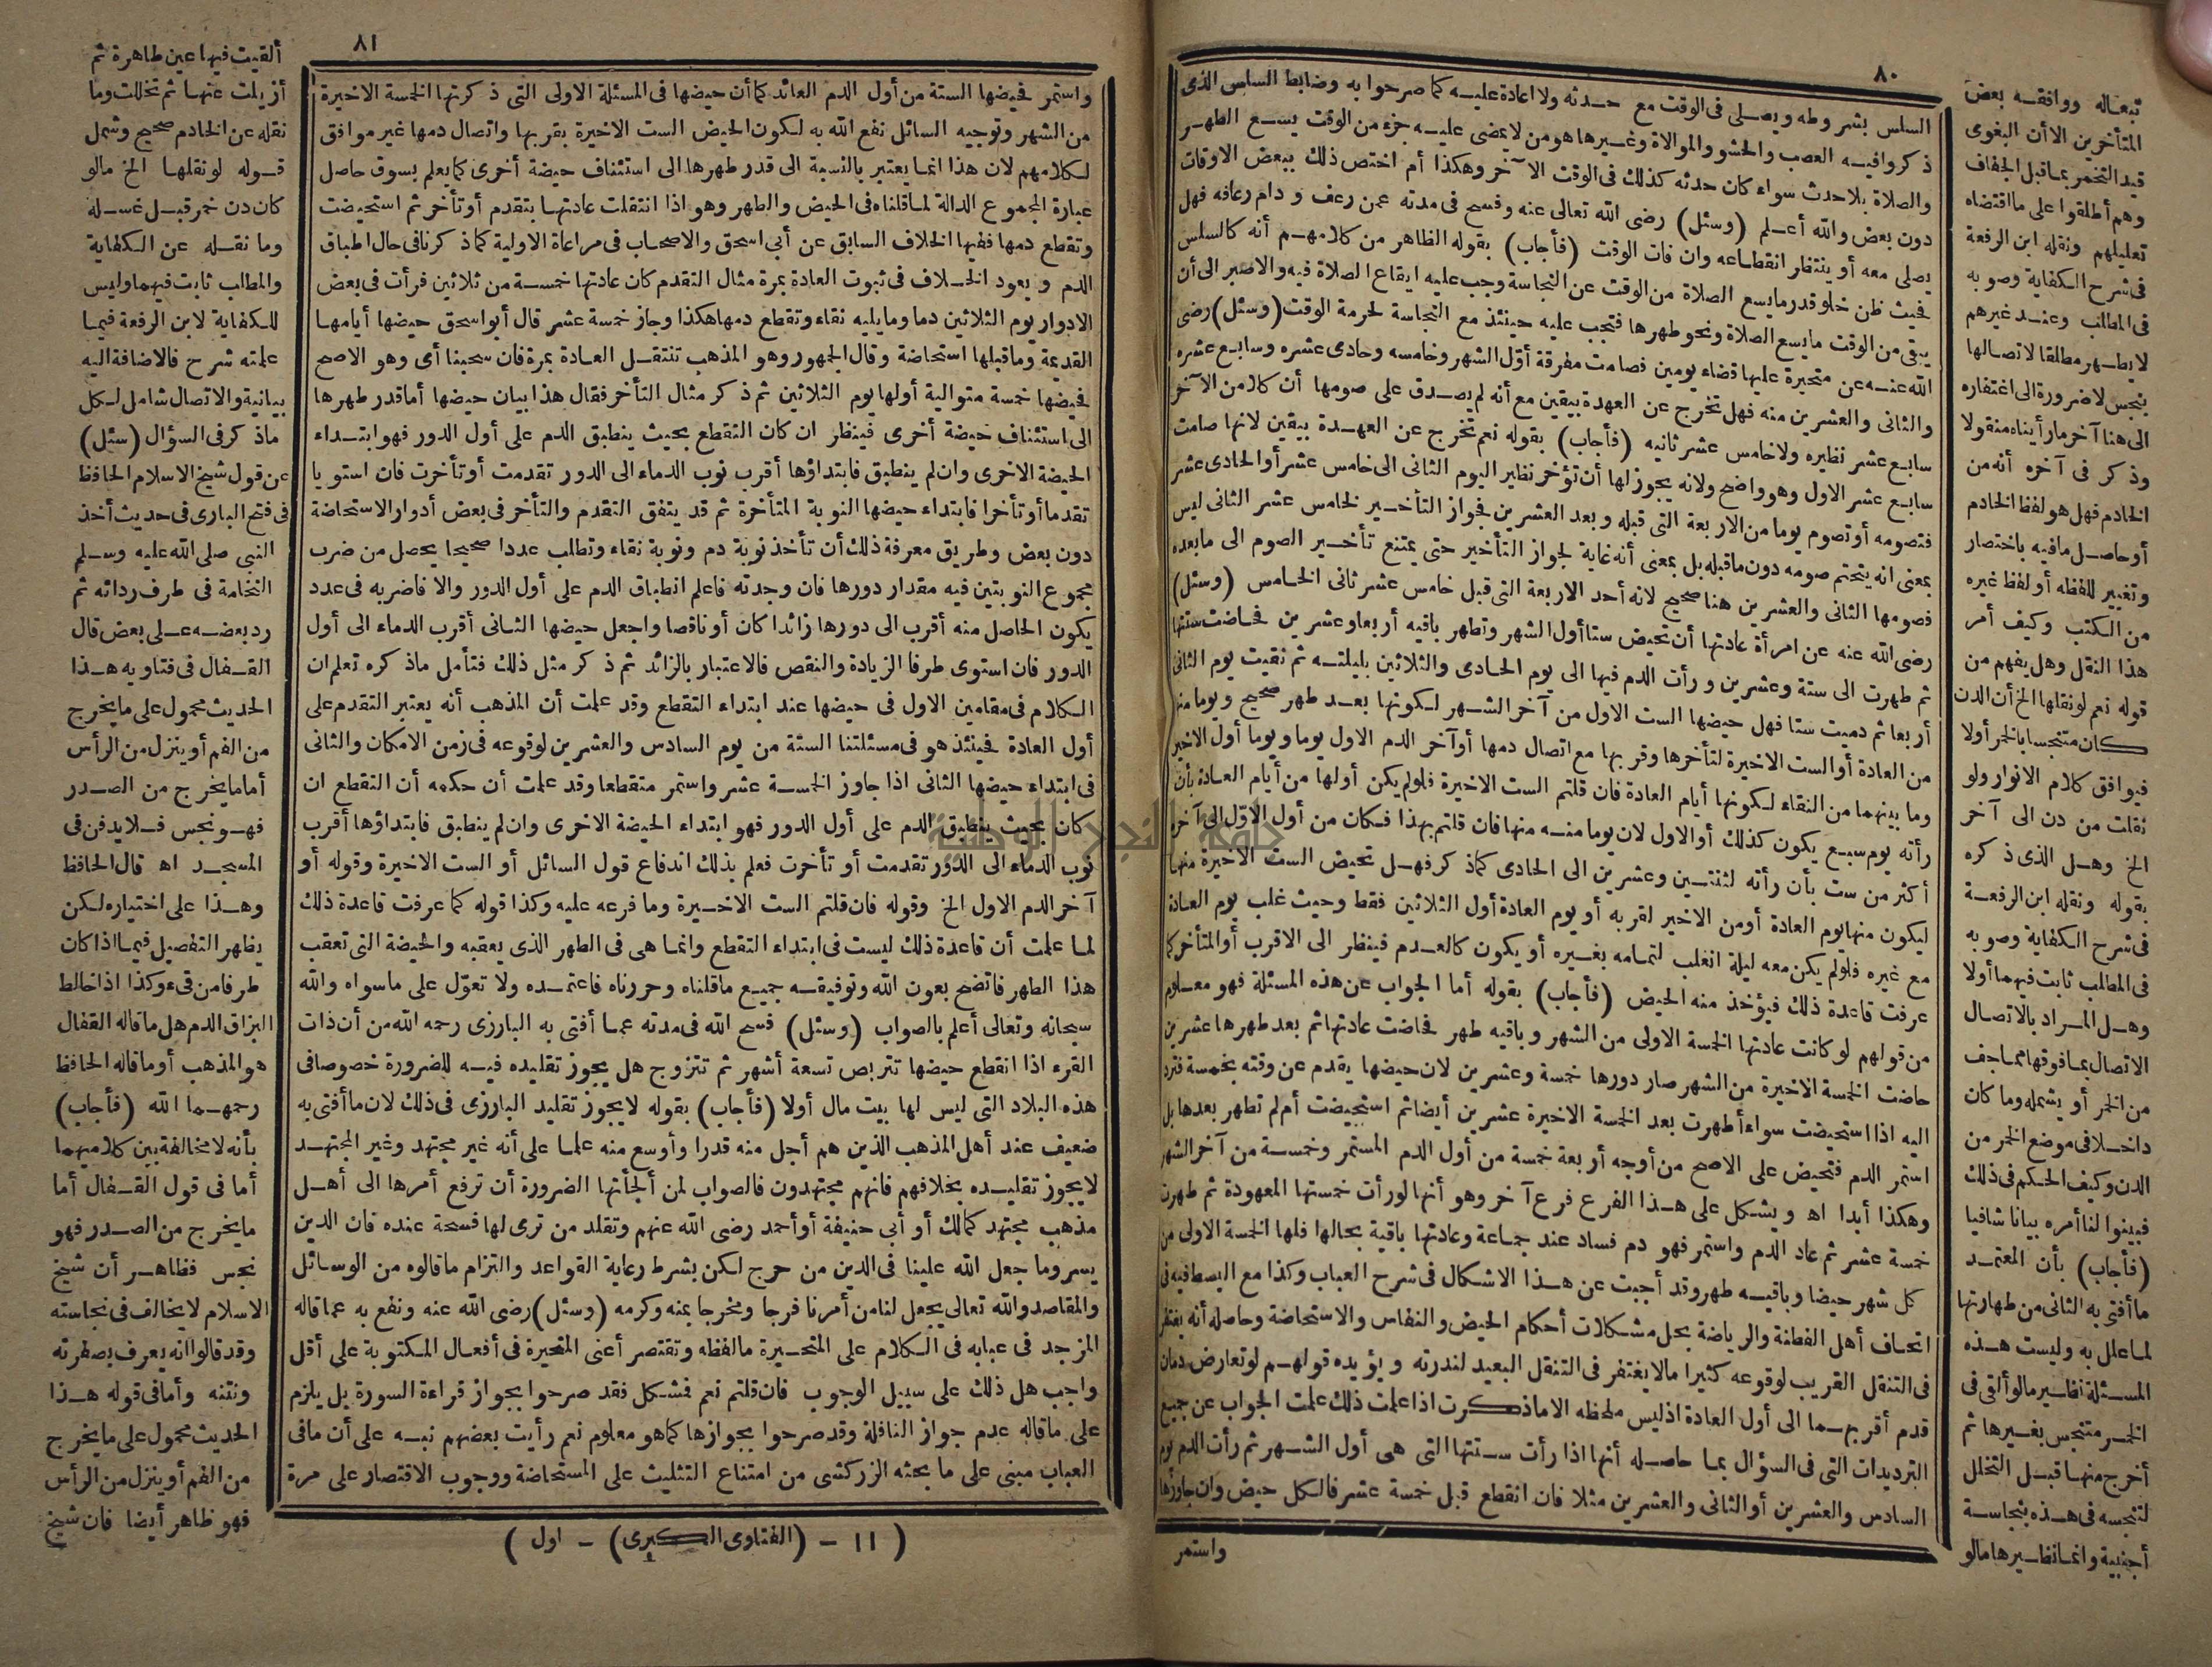 ٨٠
السلس بشروطه ويصلى فى الوقت مع حدثه ولا اعادة عليه كما صرحوا به وضابط السلس الذى
ذكروا فيه العصب والحشو والموالاة وغيرها هو من لا يمضى عليه جزء من الوقت يسع الطهر
والصلاة بلا حدث سواء كان حدثه كذلك فى الوقت الآخر وهكذا أم اختص ذلك ببعض الاوقات
دون بعض والله أعلم (وسئل) رضى الله تعالى عنه وفسح فى مدته عمن رعف ودام رعافه فهل
يصلى معه أو ينتظر انقطاعه وان فات الوقت (فأجاب) بقوله الظاهر من كلامهم أنه كالسلس
فحيث ظن خلو قدر ما يسع الصلاة من الوقت عن النجاسة وجب عليه ايقاع الصلاة فيه والاصبر الى أن
يبقى من الوقت ما يسع الصلاة ونحو طهرها فتجب عليه حينئذ مع النجاسة لحرمة الوقت (وسئل) رضى
الله عنه عن متحيرة عليها قضاء يومين فصامت مفرقة أول الشهر وخامسه وحادى عشره وسابع عشره
والثانى والعشرين منه فهل تخرج عن العهدة بيقين مع أنه لم يصدق على صومها أن كلا من الآخر
سابع عشر نظيره ولا خامس عشر ثانيه (فأجاب) بقوله نعم تخرج عن العهدة بيقين لانها صامت
سابع عشر الاول وهو واضح ولانه يجوز لها أن تؤخر نظير اليوم الثانى الى خامس عشر أو الحادى عشر
فتصومه أو تصوم يوما من الاربعة التى قبله وبعد العشرين فجواز التأخير لخامس عشر الثانى ليس
بمعنى انه يتحتم صومه دون ما قبله بل بمعنى أنه غاية لجواز التأخير حتى يمتنع تأخير الصوم الى ما بعده
فصومها الثانى والعشرين هنا صحيح لانه أحد الاربعة التى قبل خامس عشر ثانى الخامس (وسئل)
رضى الله عنه عن امرأة عادتها أن تحيض ستا أول الشهر وتطهر باقيه أربعا وعشرين فحاضت ستتها
ثم طهرت الى ستة وعشرين ورأت الدم فيها الى يوم الحادى والثلاثين بليلته ثم نقيت يوم الثانى
أربعا ثم دميت ستا فهل حيضها الست الاول من آخر الشهر لكونها بعد طهر صحيح ويوما منها
من العادة أو الست الاخيرة لتأخرها وقربها مع اتصال دمها أو آخر الدم الاول يوما ويوما أول الاخير
وما بينهما من النقاء لكونها أيام العادة فان قلتم الست الاخيرة فلو لم يكن أولها من أيام العادة بأن
رأته يوم سبع يكون كذلك أو الاول لان يوما منه منها فان قلتم بهذا فكان من أول الاول الى آخره
أكثر من ست بأن رأته لثنتين وعشرين الى الحادى كما ذكر فهل تحيض الست الاخيرة منها
ليكون منها يوم العادة أو من الاخير لقربه أو يوم العادة أول الثلاثين فقط وحيث غلب يوم العادة
مع غيره فلو لم يكن معه ليلة انغلب لتمامه بغيره أو يكون كالعدم فينظر الى الاقرب أو المتأخر كما
عرفت قاعدة ذلك فيؤخذ منه الحيض (فأجاب) بقوله أما الجواب عن هذه المسئلة فهو معلوم
من قولهم لو كانت عادتها الخمسة الاولى من الشهر وباقيه طهر فحاضت عادتها ثم بعد طهرها عشرين
حاضت الخمسة الاخيرة من الشهر صار دورها خمسة وعشرين لان حيضها يقدم عن وقته بخمسة فترد
اليه اذا استحيضت سواء أطهرت بعد الخمسة الاخيرة عشرين أيضا ثم استحيضت أم لم تطهر بعدها بل
استمر الدم فتحيض على الاصح من أوجه أربعة خمسة من أول الدم المستمر وخمسة من آخر الشهر
وهكذا أبدا اه ويشكل على هذا الفرع فرع آخر وهو أنها لو رأت خمستها المعهودة ثم طهرت
خمسة عشر ثم عاد الدم واستمر فهو دم فساد عند جماعة وعادتها باقية بحالها فلها الخمسة الاولى من
كل شهر حيضا وباقيه طهر وقد أجبت عن هذا الاشكال فى شرح العباب وكذا مع البسط فيه فى
اتحاف أهل الفطنة والرياضة بحل مشكلات أحكام الحيض والنفاس والاستحاضة وحاصله أنه يغتفر
فى التنقل القريب لوقوعه كثيرا ما لا يغتفر فى التنقل البعيد لندرته ويؤيده قولهم لو تعارض دمان
قدم أقربهما الى أول العادة اذ ليس ملحظه الا ما ذكرت اذا علمت ذلك علمت الجواب عن جميع
الترديدات التى فى السؤال بما حاصله أنها اذا رأت ستتها التى هى أول الشهر ثم رأت الدم يوم
السادس والعشرين أو الثانى والعشرين مثلا فان انقطع قبل خمسة عشر فالكل حيض وان جاوزها
واستمر
تبعا له ووافقه بعض
المتأخرين الا أن البغوى
قيد التخمر بما قبل الجفاف
وهم أطلقوا على ما اقتضاه
تعليلهم ونقله ابن الرفعة
فى شرح الكفاية وصوبه
فى المطلب وعند غيرهم
لا يطهر مطلقا لاتصالها
بنجس لا ضرورة الى اغتفاره
الى هنا آخر ما رأيناه منقولا
وذكر فى آخره أنه من
الخادم فهل هو لفظ الخادم
أو حاصل ما فيه باختصار
وتغيير للفظه أو لفظ غيره
من الكتب وكيف أمر
هذا النقل وهل يفهم من
قوله نعم لو نقلها الخ أن الدن
كان متنجسا بالخمر أولا
فيوافق كلام الانوار ولو
نقلت من دن الى آخر
الخ وهل الذى ذكره
بقوله ونقله ابن الرفعة
فى شرح الكفاية وصوبه
فى المطلب ثابت فيهما أولا
وهل المراد بالاتصال
الاتصال بما فوقها مما جف
من الخمر أو يشمله وما كان
داخلا فى موضع الخمر من
الدن وكيف الحكم فى ذلك
فبينوا لنا أمره بيانا شافيا
(فأجاب) بأن المعتمد
ما أفتى به الثانى من طهارتها
لما علل به وليست هذه
المسئلة نظير ما لو ألقى فى
الخمر متنجس بغيرها ثم
أخرج منها قبل التخلل
لتنجسه فى هذه بنجاسة
أجنبية وانما نظيرها ما لو
٨١
واستمر فحيضها الستة من أول الدم العائد كما أن حيضها فى المسئلة الاولى التى ذكرتها الخمسة الاخيرة
من الشهر وتوجيه السائل نفع الله به لكون الحيض الست الاخيرة بقربها واتصال دمها غير موافق
لكلامهم لان هذا انما يعتبر بالنسبة الى قدر طهرها الى استئناف حيضة أخرى كما يعلم بسوق حاصل
عبارة المجموع الدالة لما قلناه فى الحيض والطهر وهو اذا انتقلت عادتها بتقدم أو تأخر ثم استحيضت
وتقطع دمها ففيها الخلاف السابق عن أبى اسحق والاصحاب فى مراعاة الاولية كما ذكرنا فى حال اطباق
الدم ويعود الخلاف فى ثبوت العادة بمرة مثال التقدم كان عادتها خمسة من ثلاثين فرأت فى بعض
الادوار يوم الثلاثين دما وما يليه نقاء وتقطع دمها هكذا وجاز خمسة عشر قال أبو اسحق حيضها أيامها
القديمة وما قبلها استحاضة وقال الجمهور وهو المذهب تنتقل العادة بمرة فان سحبنا أى وهو الاصح
فحيضها خمسة متوالية أولها يوم الثلاثين ثم ذكر مثال التأخر فقال هذا بيان حيضها أما قدر طهرها
الى استئناف حيضة أخرى فينظر ان كان التقطع بحيث ينطبق الدم على أول الدور فهو ابتداء
الحيضة الاخرى وان لم ينطبق فابتداؤها أقرب نوب الدماء الى الدور تقدمت أو تأخرت فان استويا
تقدما أو تأخرا فابتداء حيضها النوبة المتأخرة ثم قد يتفق التقدم والتأخر فى بعض أدوار الاستحاضة
دون بعض وطريق معرفة ذلك أن تأخذ نوبة دم ونوبة نقاء وتطلب عددا صحيحا يحصل من ضرب
مجموع النوبتين فيه مقدار دورها فان وجدته فاعلم انطباق الدم على أول الدور والا فاضربه فى عدد
يكون الحاصل منه أقرب الى دورها زائدا كان أو ناقصا واجعل حيضها الثانى أقرب الدماء الى أول
الدور فان استوى طرفا الزيادة والنقص فالاعتبار بالزائد ثم ذكر مثل ذلك فتأمل ما ذكره تعلم ان
الكلام فى مقامين الاول فى حيضها عند ابتداء التقطع وقد علمت أن المذهب أنه يعتبر التقدم على
أول العادة فحينئذ هو فى مسئلتنا الستة من يوم السادس والعشرين لوقوعه فى زمن الامكان والثانى
فى ابتداء حيضها الثانى اذا جاوز الخمسة عشر واستمر متقطعا وقد علمت أن حكمه أن التقطع ان
كان بحيث ينطبق الدم على أول الدور فهو ابتداء الحيضة الاخرى وان لم ينطبق فابتداؤها أقرب
نوب الدماء الى الدور تقدمت أو تأخرت فعلم بذلك اندفاع قول السائل أو الست الاخيرة وقوله أو
آخر الدم الاول الخ وقوله فان قلتم الست الاخيرة وما فرعه عليه وكذا قوله كما عرفت قاعدة ذلك
لما علمت أن قاعدة ذلك ليست فى ابتداء التقطع وانما هى فى الطهر الذى يعقبه والحيضة التى تعقب
هذا الطهر فاتضح بعون الله وتوفيقه جميع ما قلناه وحررناه فاعتمده ولا تعول على ما سواه والله
سبحانه وتعالى أعلم بالصواب (وسئل) فسح الله فى مدته عما أفتى به البارزى رحمه الله من أن ذات
القرء اذا انقطع حيضها تتربص تسعة أشهر ثم تتزوج هل يجوز تقليده فيه للضرورة خصوصا فى
هذه البلاد التى ليس لها بيت مال أولا (فأجاب) بقوله لا يجوز تقليد البارزى فى ذلك لان ما أفتى به
ضعيف عند أهل المذهب الذين هم أجل منه قدرا وأوسع منه علما على أنه غير مجتهد وغير المجتهد
لا يجوز تقليده بخلافهم فانهم مجتهدون فالصواب لمن ألجأتها الضرورة أن ترفع أمرها الى أهل
مذهب مجتهد كمالك أو أبى حنيفة أو أحمد رضى الله عنهم وتقلد من ترى لها فسحة عنده فان الدين
يسر وما جعل الله علينا فى الدين من حرج لكن بشرط رعاية القواعد والتزام ما قالوه من الوسائل
والمقاصد والله تعالى يجعل لنا من أمرنا فرجا ومخرجا بمنه وكرمه (وسئل) رضى الله عنه ونفع به عما قاله
المزجد فى عبابه فى الكلام على المتحيرة ما لفظه وتقتصر أعنى المتحيرة فى أفعال المكتوبة على أقل
واجب هل ذلك على سبيل الوجوب فان قلتم نعم فمشكل فقد صرحوا بجواز قراءة السورة بل يلزم
على ما قاله عدم جواز النافلة وقد صرحوا بجوازها كما هو معلوم نعم رأيت بعضهم نبه على أن ما فى
العباب مبنى على ما بحثه الزركشى من امتناع التثليث على المستحاضة ووجوب الاقتصار على مرة
(١١ - (الفتاوى الكبرى) - اول)
ألقيت فيها عين طاهرة ثم
أزيلت عنها ثم تخللت وما
نقله عن الخادم صحيح وشمل
قوله لو نقلها الخ ما لو
كان دن خمر قبل غسله
وما نقله عن الكفاية
والمطلب ثابت فيهما وليس
للكفاية لابن الرفعة فيما
علمته شرح فالاضافة اليه
بيانية والاتصال شامل لكل
ما ذكر فى السؤال (سئل)
عن قول شيخ الاسلام الحافظ
فى فتح البارى فى حديث أخذ
النبى صلى الله عليه وسلم
النخامة فى طرف ردائه ثم
رد بعضه على بعض قال
القفال فى فتاويه هذا
الحديث محمول على ما يخرج
من الفم أو ينزل من الرأس
أما ما يخرج من الصدر
فهو نجس فلا يدفن فى
المسجد اه قال الحافظ
وهذا على اختياره لكن
يظهر التفصيل فيما اذا كان
طرفا من قىء وكذا اذا خالط
البزاق الدم هل ما قاله القفال
هو المذهب أو ما قاله الحافظ
رحمهما الله (فأجاب)
بأنه لا مخالفة بين كلاميهما
أما فى قول القفال أما
ما يخرج من الصدر فهو
نجس فظاهر أن شيخ
الاسلام لا يخالف فى نجاسته
وقد قالوا انه يعرف بصفرته
ونتنه وأما فى قوله هذا
الحديث محمول على ما يخرج
من الفم أو ينزل من الرأس
فهو ظاهر أيضا فان شيخ